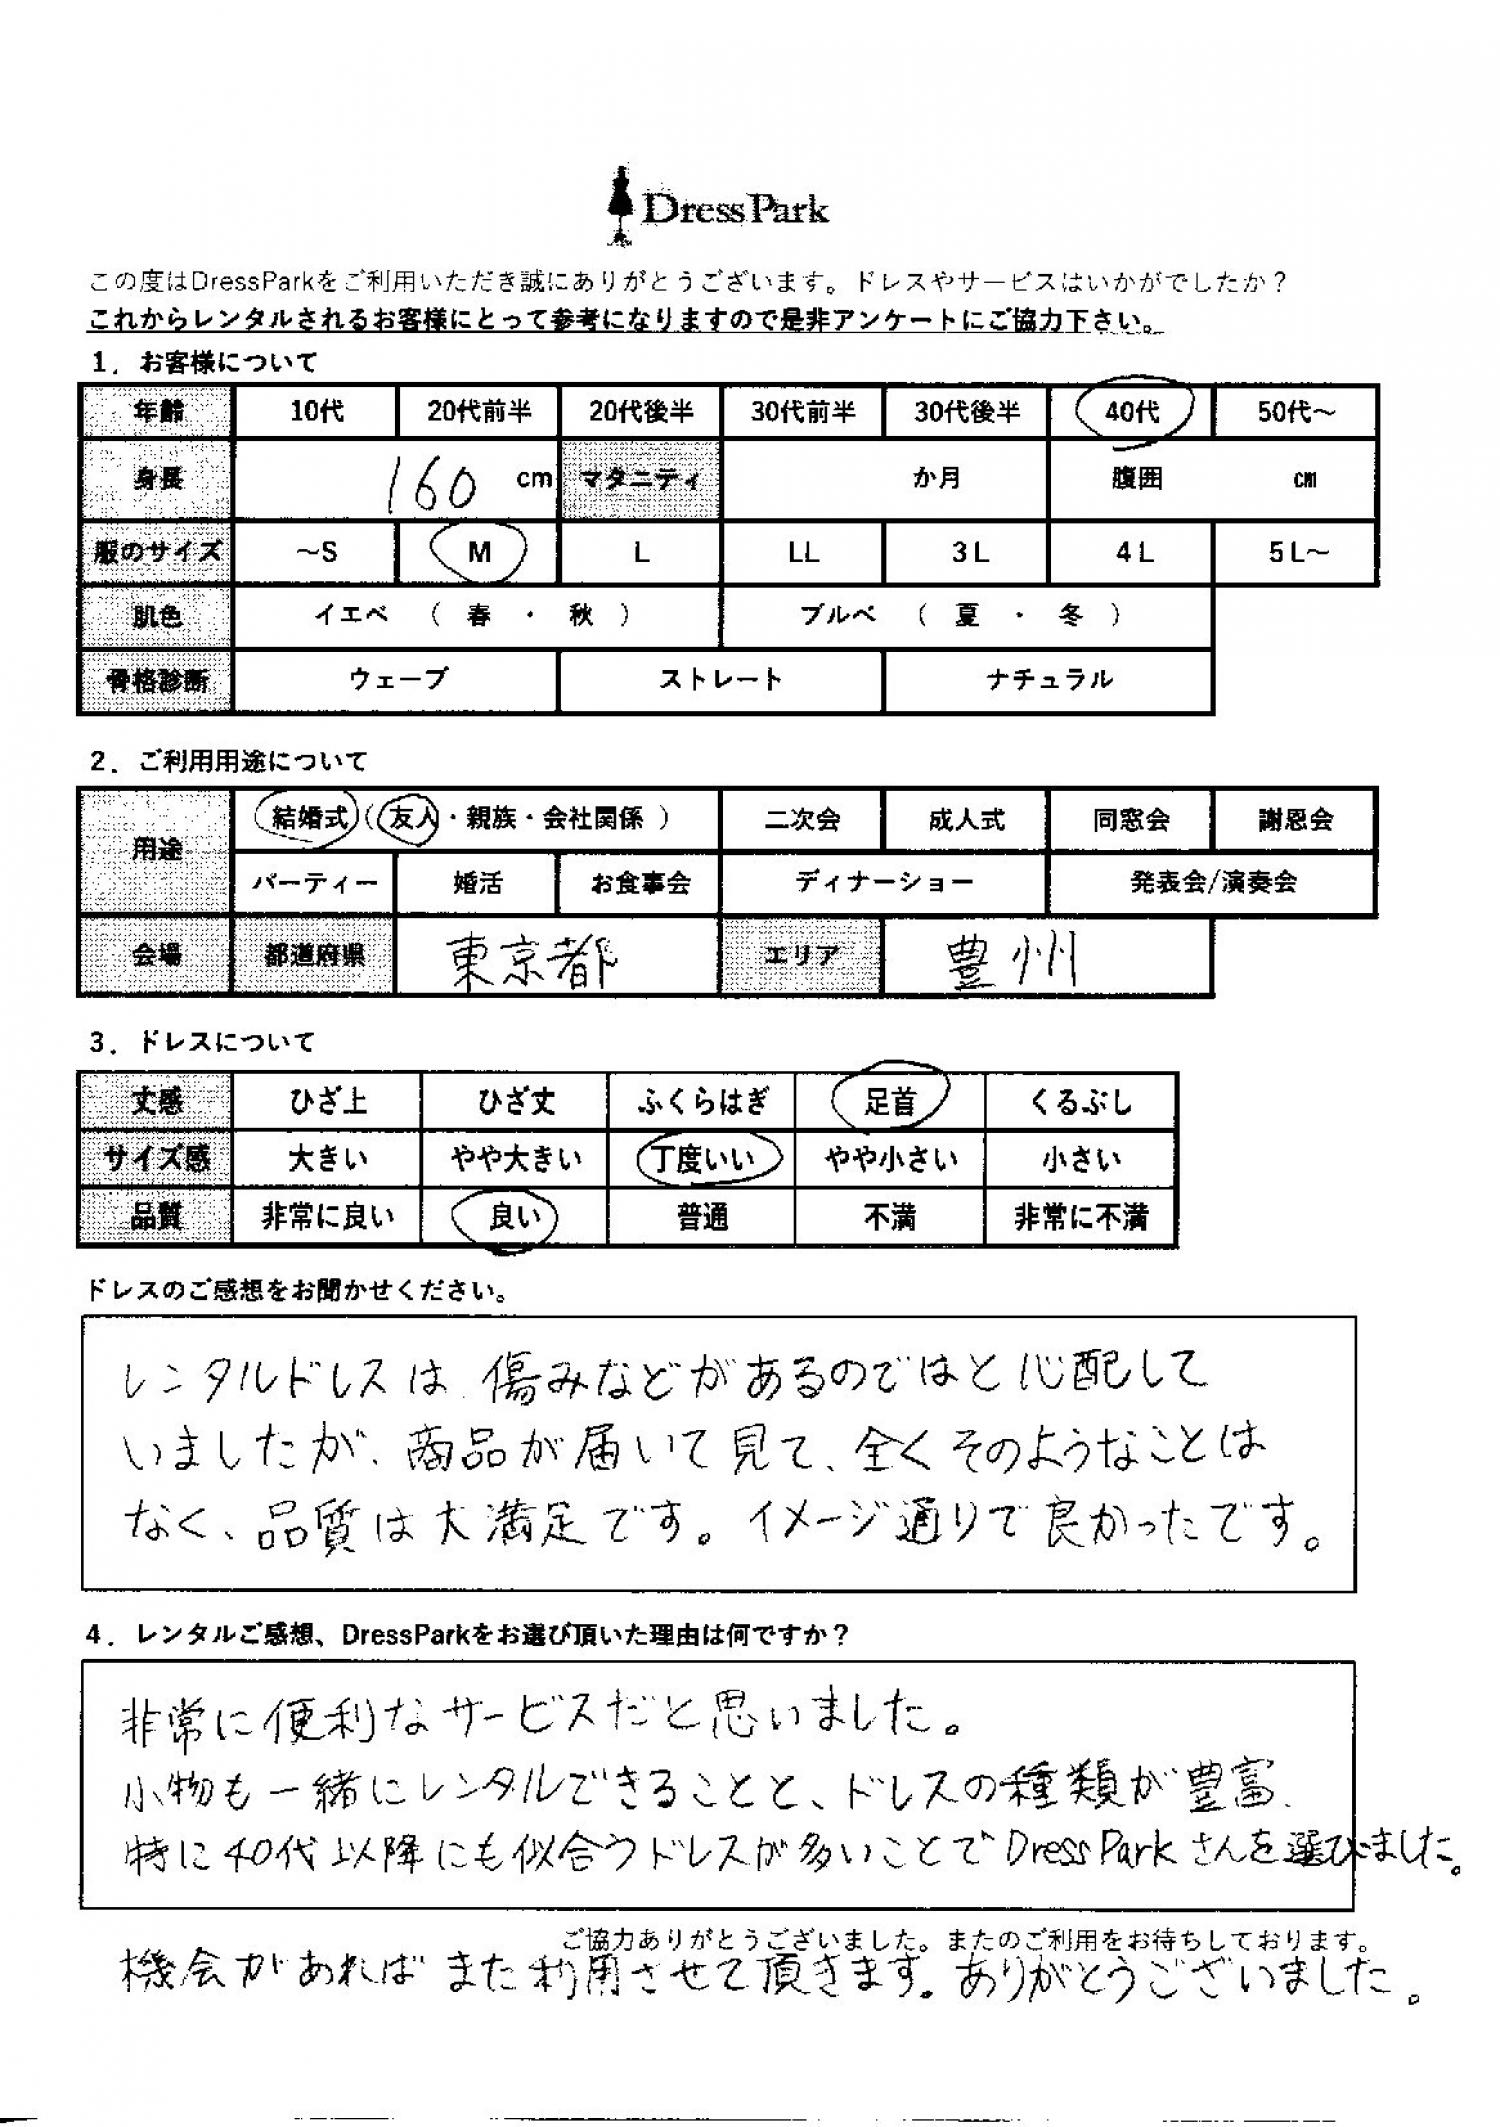 DressPark
この度はDressParkをご利用いただき誠にありがとうございます。ドレスやサービスはいかがでしたか？
これからレンタルされるお客様にとって参考になりますので是非アンケートにご協力下さい。
1．お客様について
年齢 10代 20代前半 20代後半 30代前半 30代後半 40代 50代～
身長 160 cm マタニティ か月 腹囲 cm
服のサイズ ～S M L LL 3L 4L 5L～
肌色 イエベ （ 春 ・ 秋 ） ブルベ （ 夏 ・ 冬 ）
骨格診断 ウェーブ ストレート ナチュラル
2．ご利用用途について
用途 結婚式（友人・親族・会社関係 ） 二次会 成人式 同窓会 謝恩会
パーティー 婚活 お食事会 ディナーショー 発表会/演奏会
会場 都道府県 東京都 エリア 豊州
3．ドレスについて
丈感 ひざ上 ひざ丈 ふくらはぎ 足首 くるぶし
サイズ感 大きい やや大きい 丁度いい やや小さい 小さい
品質 非常に良い 良い 普通 不満 非常に不満
ドレスのご感想をお聞かせください。
レンタルドレスは、傷みなどがあるのではと心配して
いましたが、商品が届いて見て、全くそのようなことは
なく、品質は大満足です。イメージ通りで良かったです。
4．レンタルご感想、DressParkをお選び頂いた理由は何ですか？
非常に便利なサービスだと思いました。
小物も一緒にレンタルできることと、ドレスの種類が豊富、
特に40代以降にも似合うドレスが多いことでDressParkさんを選びました。
ご協力ありがとうございました。またのご利用をお待ちしております。
機会があればまた利用させて頂きます。ありがとうございました。